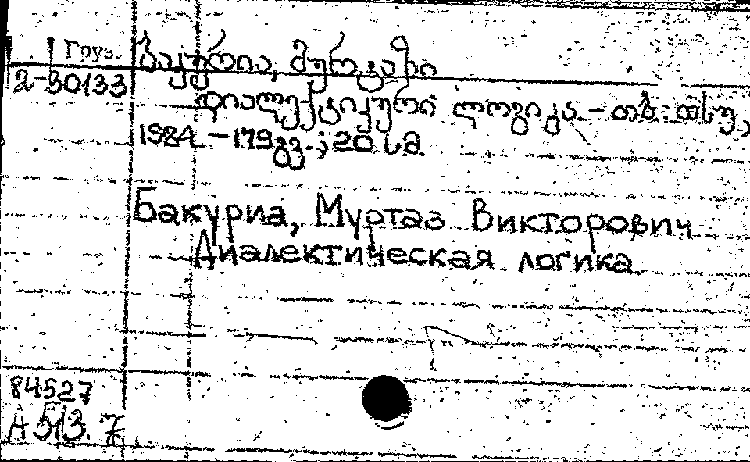 Груз.
2-30133
ბაკურია, მურთაზი
დიალექტიკური ლოგიკა. - თბ.: თსუ,
1984. - 179 გვ.; 20 სმ.
Бакуриа, Муртаз Викторович
Диалектическая логика
84527
А 513.7